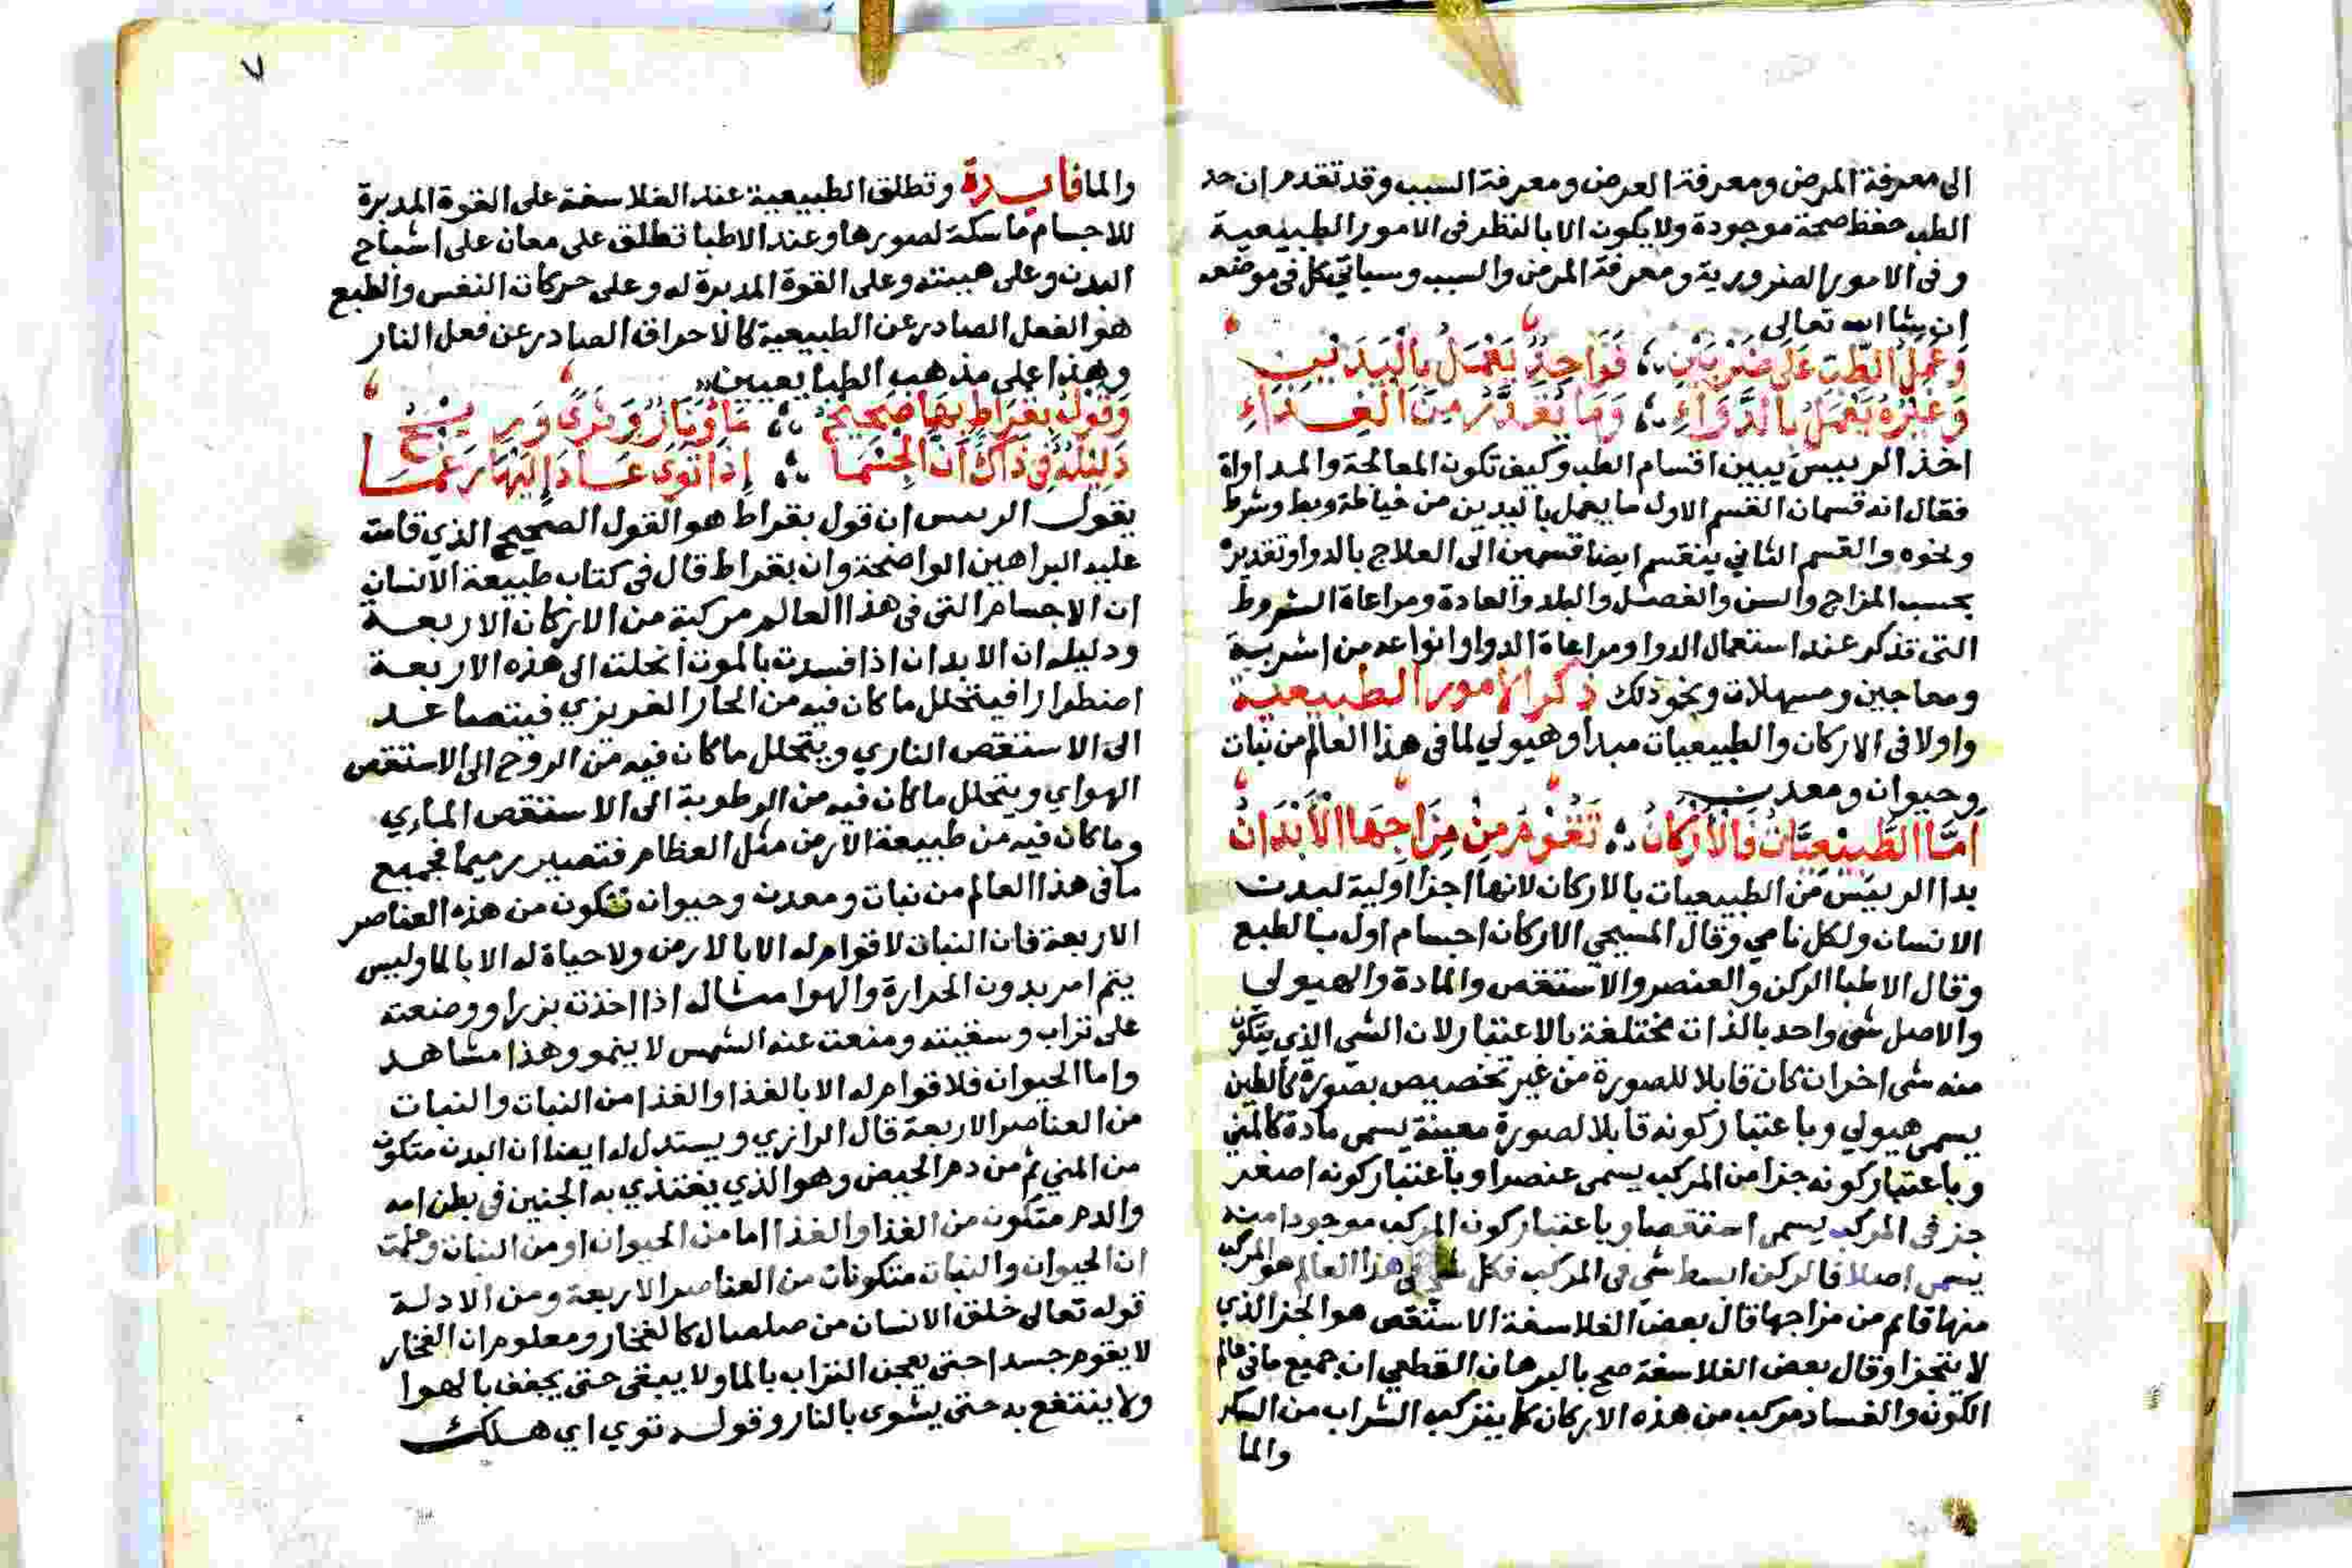 الى معرفة المرض ومعرفة العرض ومعرفة السبب وقد تقدم ان حد
الطب حفظ صحة موجودة ولا يكون الا بالنظر فى الامور الطبيعية
و فى الامور الضرورية ومعرفة المرض والسبب وسياتي كل فى موضعه
ان شا الله تعالى
وَعَمَلُ الطِّبّ عَلَى ضَرْبَيْنِ فَوَاحِدٌ يَعْمَلُ بِالْيَدَيْنِ
وَغَيْرُهُ يَعْمَلُ بِالدَّوَاءِ وَمَا يُقَدَّرُ مِنَ الْغِذَاءِ
اخذ الرييس يبين اقسام الطب وكيف تكون المعالجة والمداواة
فقال انه قسمان القسم الاول ما يعمل باليدين من خياطة وبط وشرط
ونحوه والقسم الثاني ينقسم ايضا قسمين الى العلاج بالدوا وتقديره
بحسب المزاج والسن والفصل والبلد والعادة ومراعاة الشروط
التى تذكر عند استعمال الدوا ومراعاة الدوا وانواعه من اشربة
ومعاجين ومسهلات ونحو ذلك ذكر الامور الطبيعية
واولا فى الاركان والطبيعيات مبدا وهيولي لما فى هذا العالم من نبات
وحيوان ومعدن
اَمَّا الطَّبِيْعِيَّاتُ فَالْاَرْكَانُ تَقُوْمُ مِنْ مِزَاجِهَا الْاَبْدَانُ
بدا الرييس من الطبيعيات بالاركان لانها اجزا اولية لبدن
الانسان ولكل نامي وقال المسيحي الاركان اجسام اول بالطبع
وقال الاطبا الركن والعنصر والاستقص والمادة والهيولي
والاصل شى واحد بالذات مختلفة بالاعتبار لان الشى الذي يتكون
منه شى اخر ان كان قابلا للصورة من غير تخصيص بصورة كالطين
يسمى هيولي وباعتبار كونه قابلا لصورة معينة يسمى مادة كالمني
وباعتبار كونه جزا من المركب يسمى عنصرا وباعتبار كونه اصغر
جز فى المركب يسمى استقصا وباعتبار كون المركب موجودا منه
يسمى اصلا فالركن ابسط شى فى المركب فكل فى هذا العالم هو المركب
منها قايم من مزاجها قال بعض الفلاسفة الاستقص هو الجز الذي
لا يتجزا وقال بعض الفلاسفة صح بالبرهان القطعي ان جميع ما فى عالم
الكون والفساد مركب من هذه الاركان كما يتركب الشراب من السكر
والما
والما فايدة وتطلق الطبيعية عند الفلاسفة على القوة المدبرة
للاجسام ماسكة لصورها وعند الاطبا تطلق على معان على اشباح
البدن وعلى هييته وعلى القوة المدبرة له وعلى حركات النفس والطبع
هو الفعل الصادر عن الطبيعية كالاحراق الصادر عن فعل النار
وهذا على مذهب الطبايعيين
وَقَوْلُ بُقْرَاطٍ بِهَا صَحِيحُ مَاءٌ وَنَارٌ وَثَرًى وَرِيحُ
دَلِيْلُهُ فِي ذَاكَ اَنَّ الْجِسْمَا اِذَا تَوَى عَادَ اِلَيْهَا رَغْمَا
يقول الرييس ان قول بقراط هو القول الصحيح الذي قامت
عليه البراهين الواضحة وان بقراط قال فى كتاب طبيعة الانسان
ان الاجسام التى فى هذا العالم مركبة من الاركان الاربعة
ودليله ان الابدان اذا فسدت بالموت انحلت الى هذه الاربعة
اضطرارا فيتحلل ما كان فيه من الحار الغريزي فيتصاعد
الى الاستقص الناري ويتحلل ما كان فيه من الروح الى الاستقص
الهواي ويتحلل ما كان فيه من الرطوبة الى الاستقص الماري
وما كان فيه من طبيعة الارض مثل العظام فتصير رميما فجميع
ما فى هذا العالم من نبات ومعدن وحيوان تتكون من هذه العناصر
الاربعة فان النبات لا قوام له الا بالارض ولا حياة له الا بالما وليس
يتم امر بدون الحرارة والهوا مثاله اذا اخذت بزرا ووضعته
على تراب وسقيته ومنعت عنه الشمس لا ينمو وهذا مشاهد
واما الحيوان فلا قوام له الا بالغذا والغذا من النبات والنبات
من العناصر الاربعة قال الرازي ويستدل له ايضا ان البدن متكون
من المني ثم من دم الحيض وهو الذي يغتذي به الجنين فى بطن امه
والدم متكون من الغذا والغذا اما من الحيوان او من النبات وعلمت
ان الحيوان والنبات متكونات من العناصر الاربعة ومن الادلة
قوله تعالى خلق الانسان من صلصال كالفخار ومعلوم ان الفخار
لا يقوم جسدا حتى يعجن التراب بالما ولا يبقى حتى يجفف بالهوا
ولا ينتفع به حتى يشوى بالنار وقوله توي اي هلك
٧